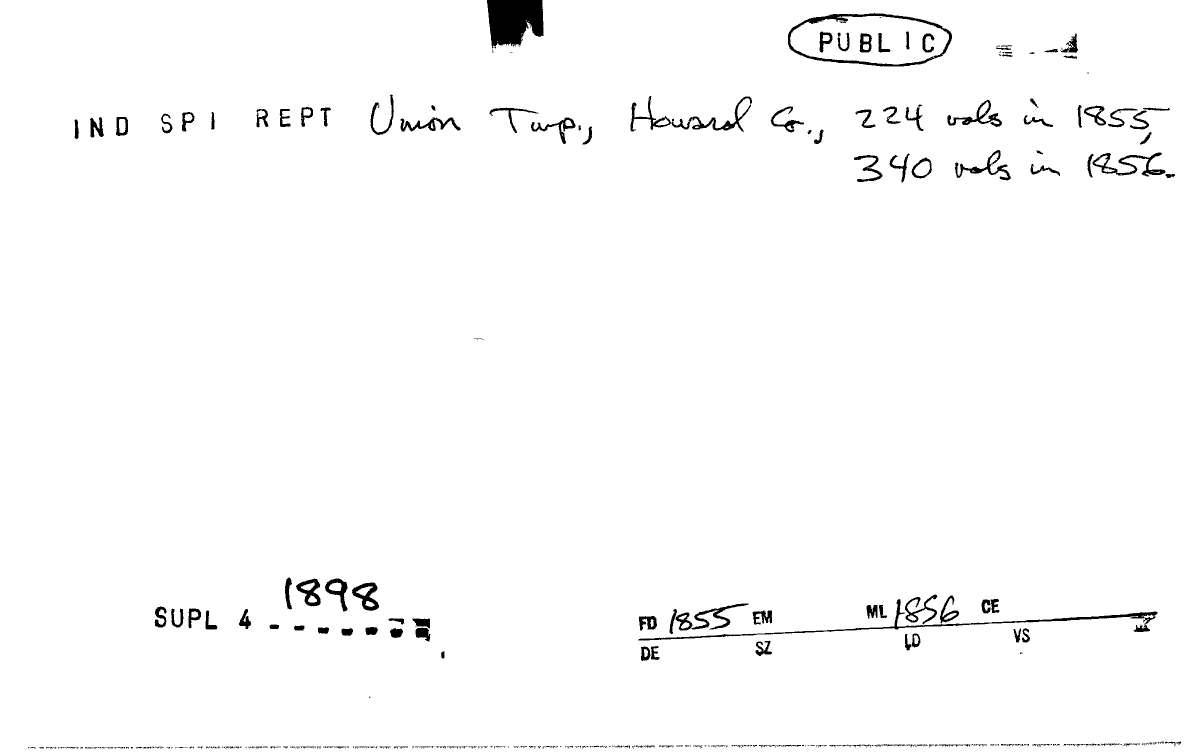 PUBLIC
IND SPI REPT Union Twp., Howard Co., 224 vols in 1855,
340 vols in 1856.
1898
SUPL 4 -------
FD 1855 EM ML 1856 CE
DE SZ LD VS